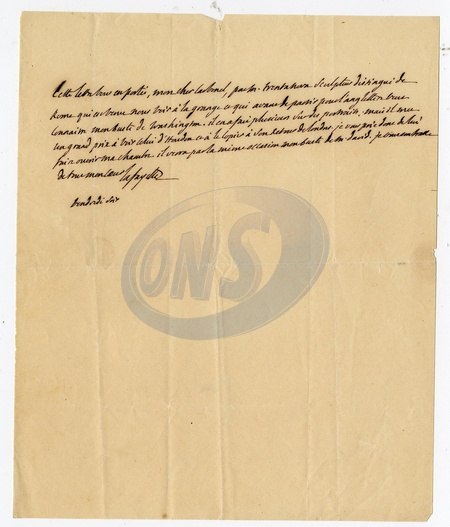 Cette lettre sera portée, mon cher Carbonel, par M. Trentanova Sculpteur distingué de
Rome qui est venu nous voir à la grange et qui avant de passer pour l'angleterre
connait mon buste de Washington. il en a fait plusieurs sur des portraits, mais il met
un grand prix à voir celui d'Houdon et à le copier à Son retour de Londres. je vous prie donc de lui
faire ouvrir ma chambre. il verra par la même occasion mon buste de M. David. je vous embrasse
de tout mon coeur
Lafayette
Vendredi Soir
ONS